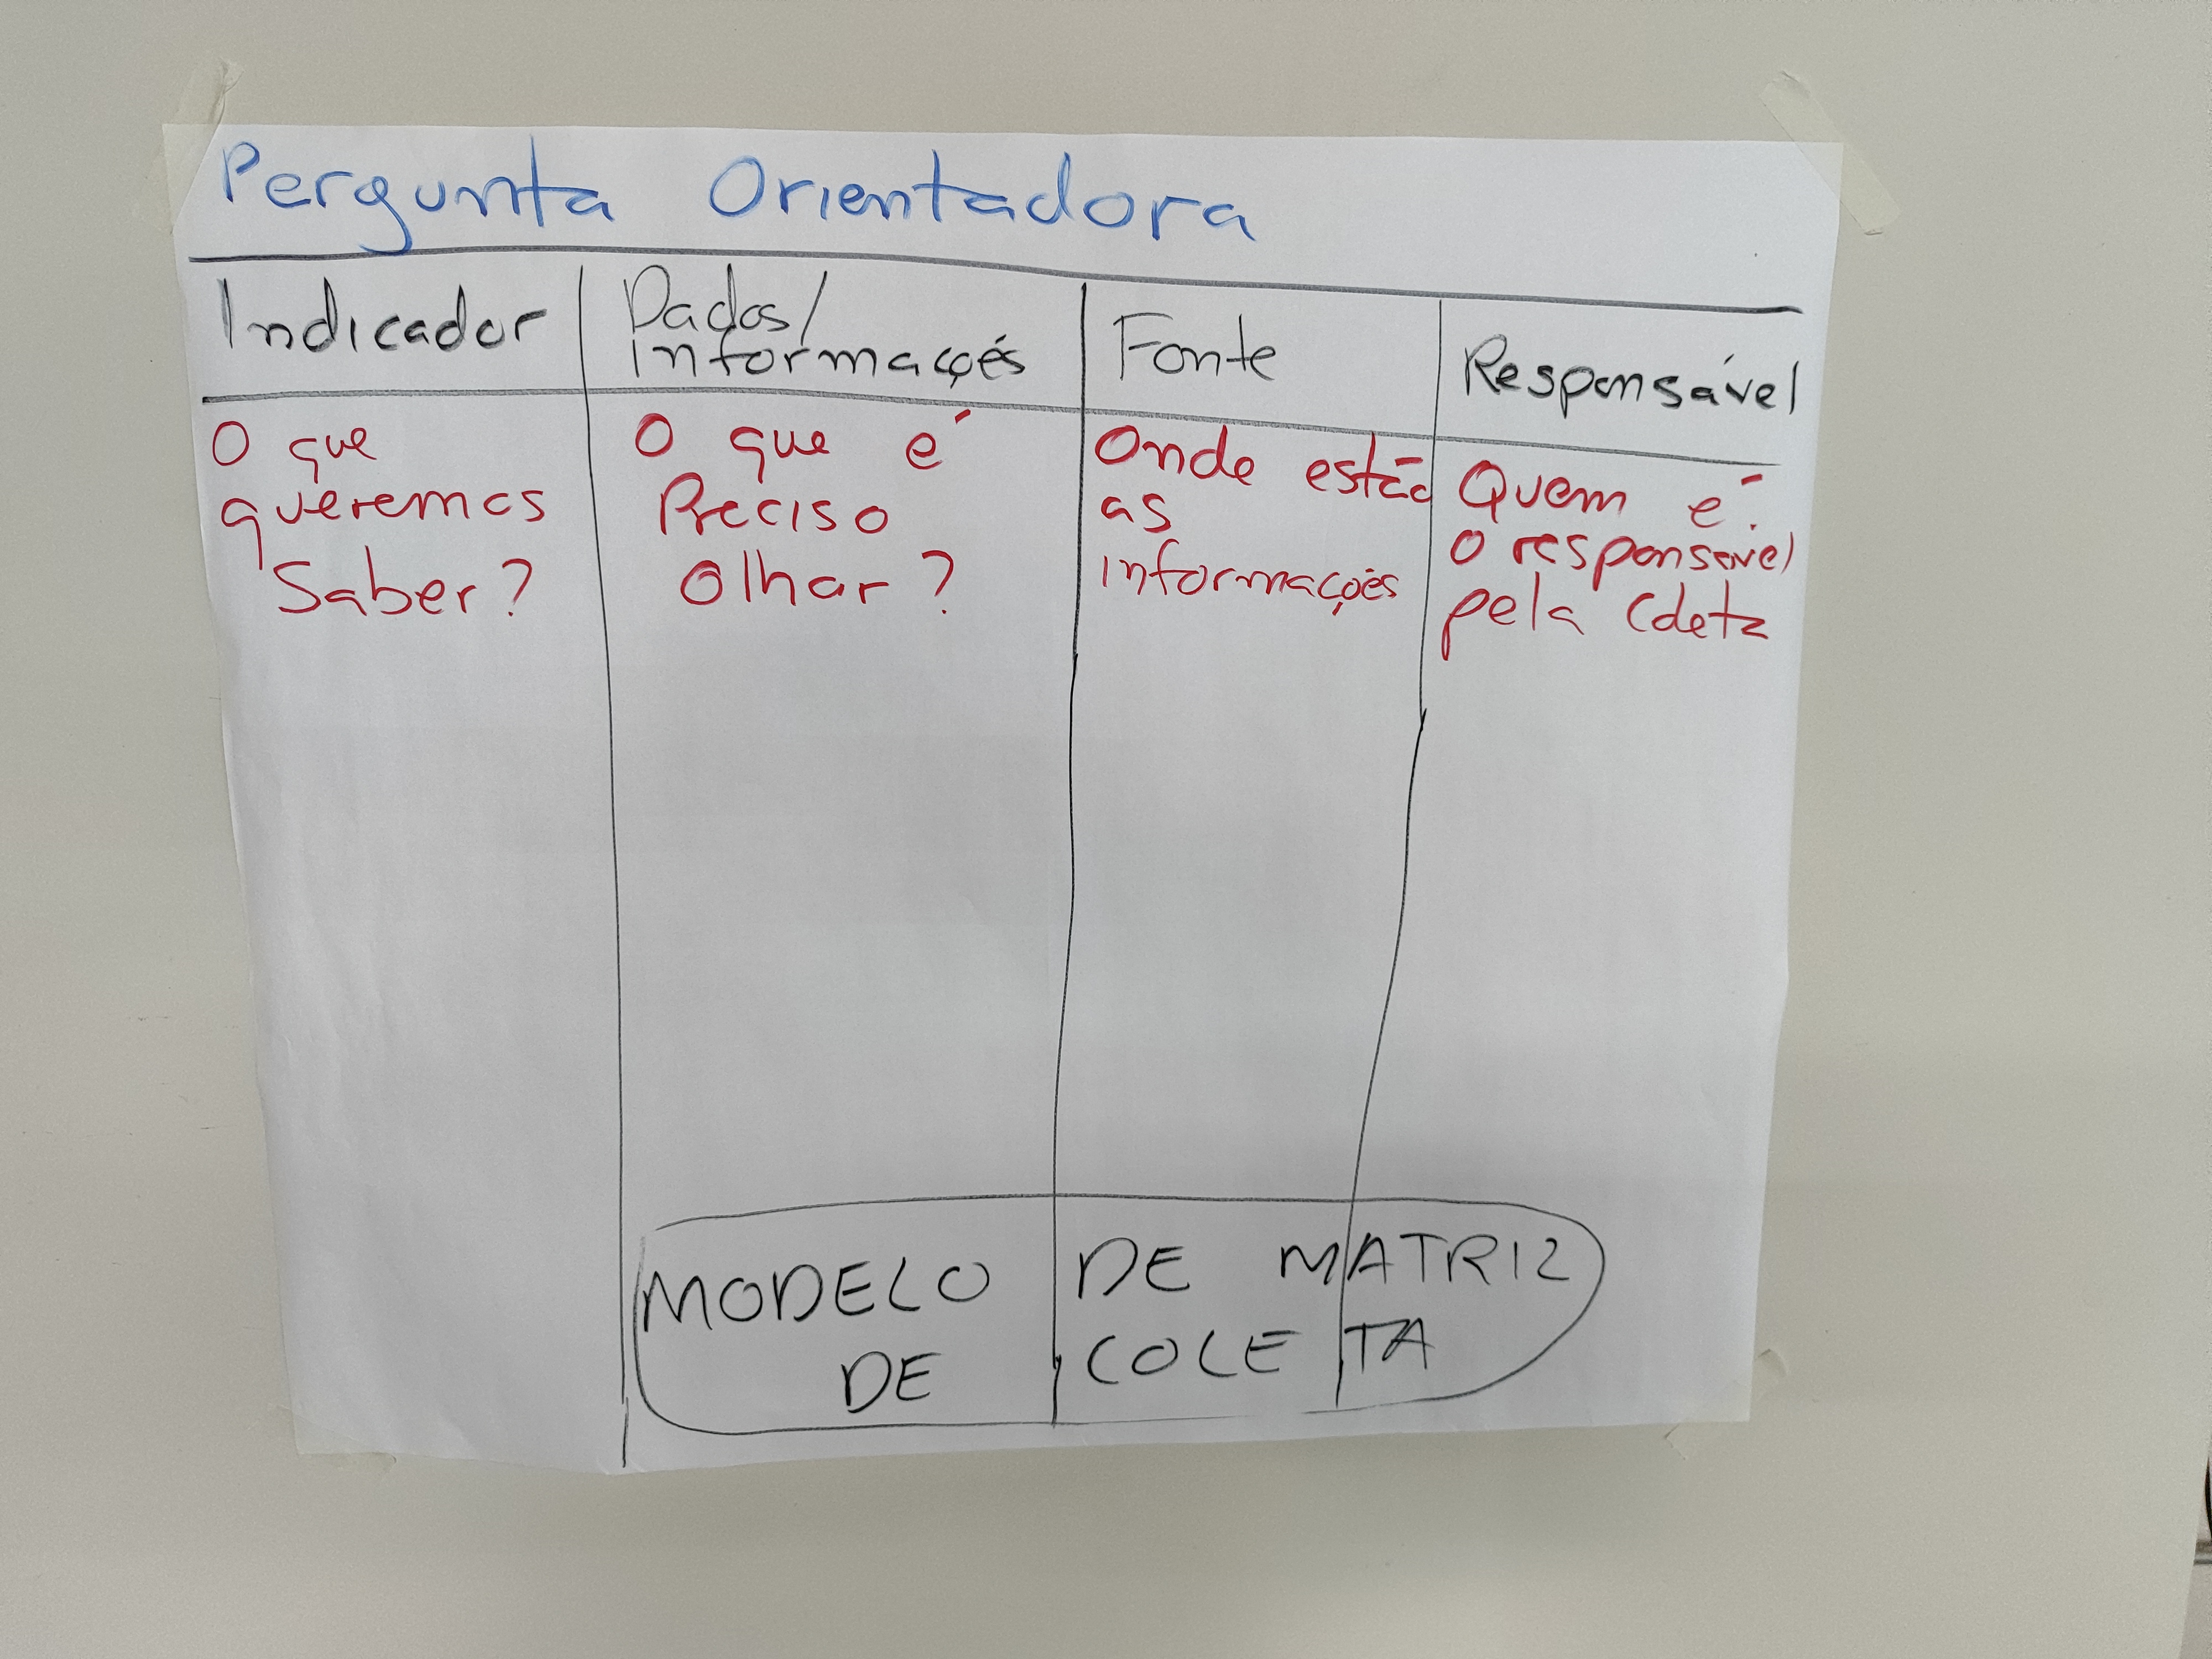 Pergunta Orientadora
Indicador
Dados/
Informações
Fonte
Responsável
O que
queremos
Saber?
O que é
Preciso
Olhar?
Onde estão
as
informações
Quem é
o responsável
pela Coleta
MODELO DE MATRIZ
DE COLETA